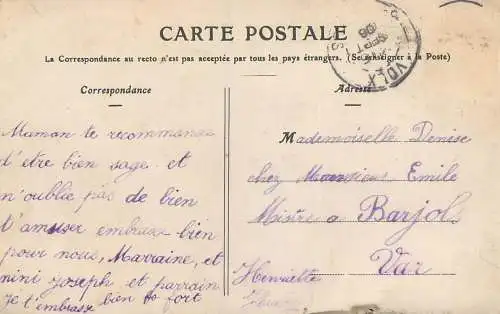 CARTE POSTALE
La Correspondance au recto n'est pas acceptée par tous les pays étrangers. (Se renseigner à la Poste)
Correspondance
Adresse
VOLX
SEPT
08
Maman te recommande
d'etre bien sage et
n'oublie pas de bien
t'amuser embrasse bien
pour nous, Marraine, et
nini Joseph et parrain
Je t'embrasse bien fort
Henriette
Mademoiselle Denise
chez Monsieur Emile
Mistre a Barjols
Var